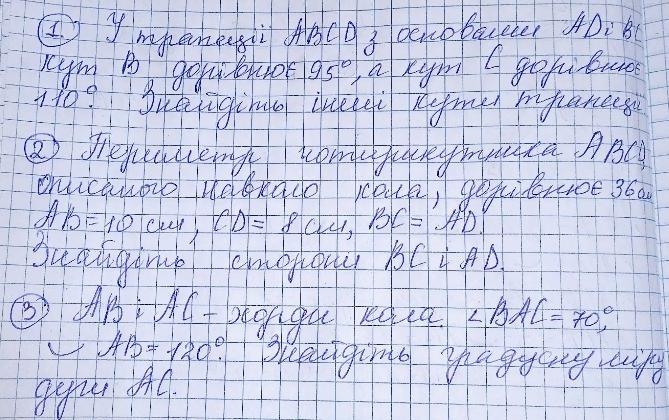 ① У трапеції ABCD з основами AD і BC
кут B дорівнює 95°, а кут C дорівнює
110°. Знайдіть інші кути трапеції
② Периметр чотирикутника ABCD,
описаного навколо кола, дорівнює 36 см
AB = 10 см, CD = 8 см, BC = AD.
Знайдіть сторони BC і AD.
③ AB і AC – хорди кола. ∠BAC = 70°,
◡ AB = 120°. Знайдіть градусну міру
дуги AC.